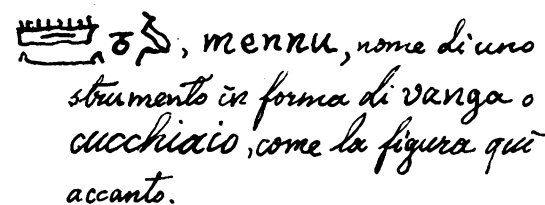 , mennu, nome di uno
strumento in forma di vanga o
cucchiaio, come la figura quì
accanto.